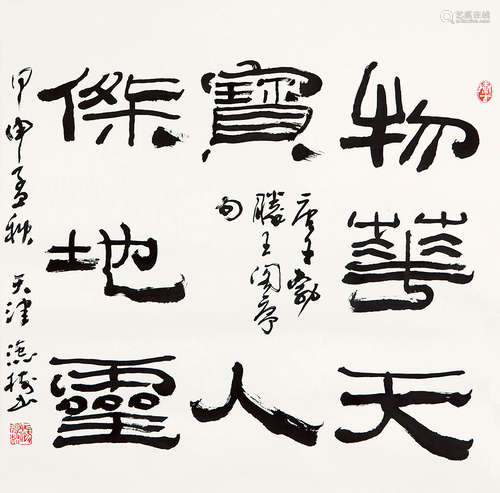 物華天
寶人
唐王勃
滕王閣序
句
傑地靈
甲申孟秋 天津
艺狐在线